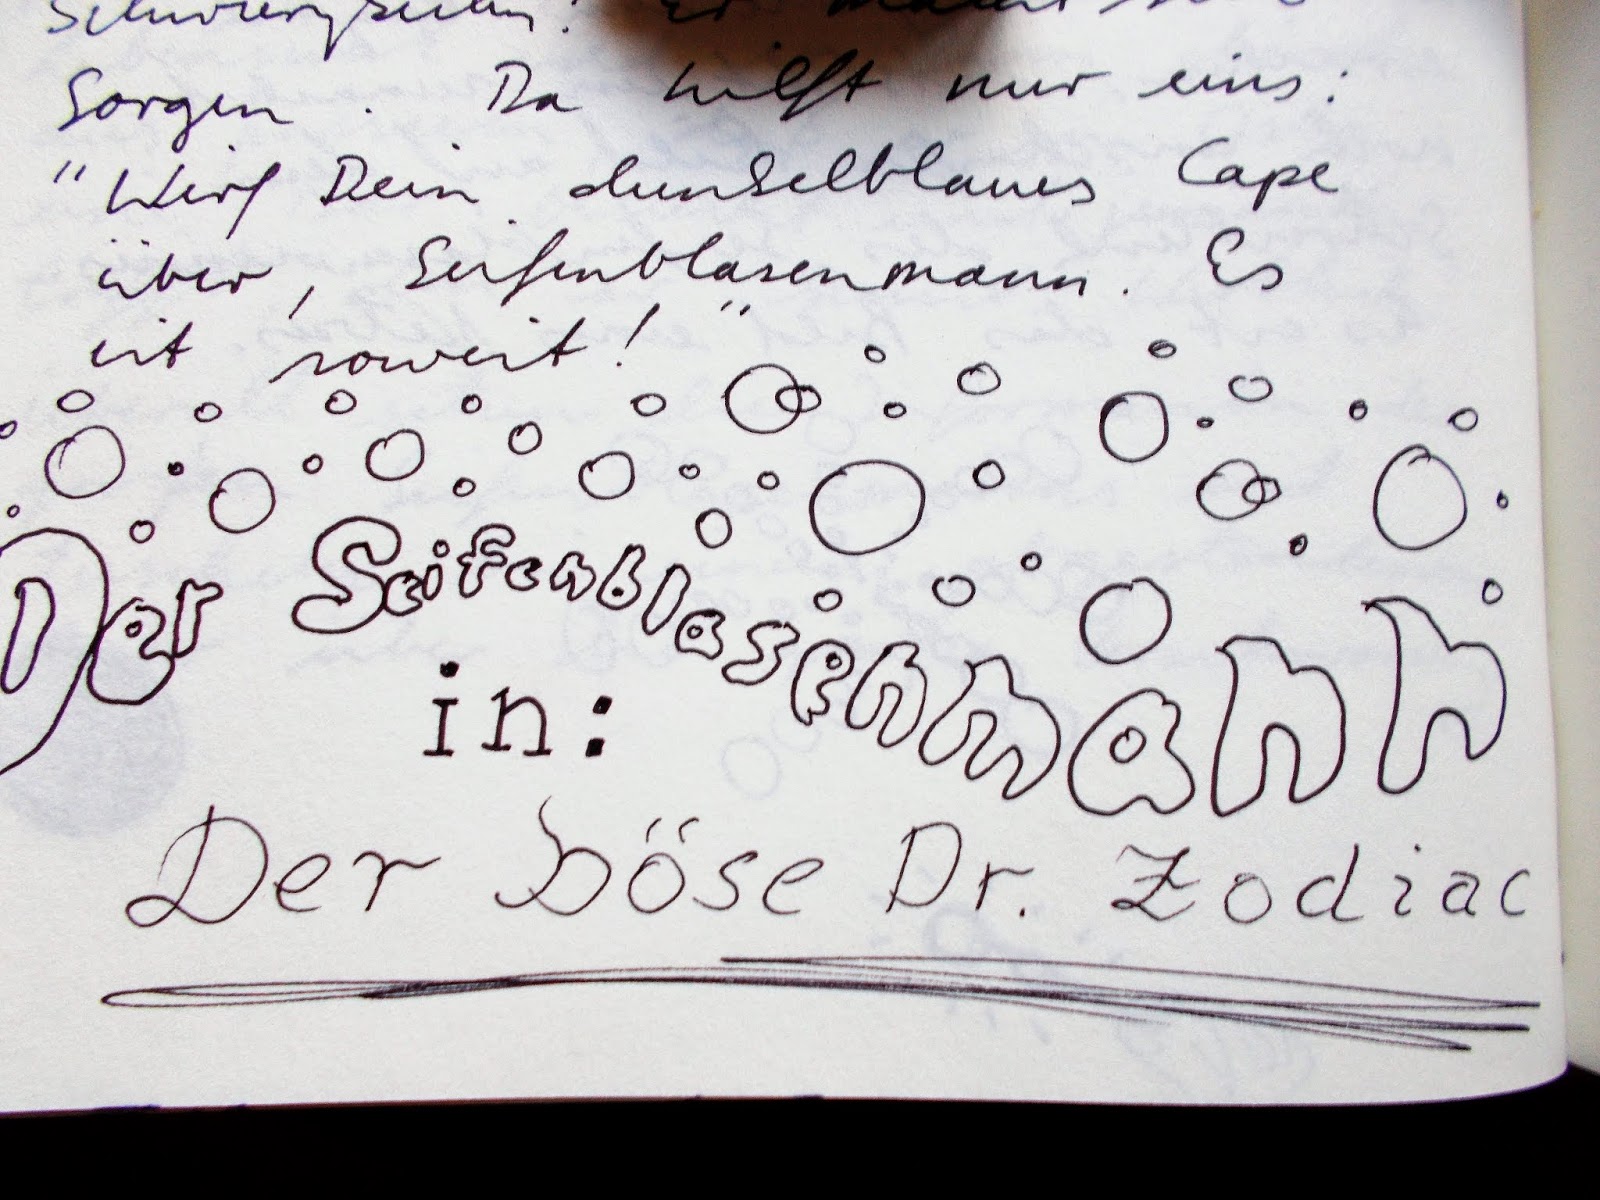 Schwierigkeiten! Er macht sich
Sorgen. Da hilft nur eins:
"Wirf Dein dunkelblaues Cape
über, Seifenblasenmann. Es
ist soweit!"
Der Seifenblasenmann
in:
Der böse Dr. Zodiac